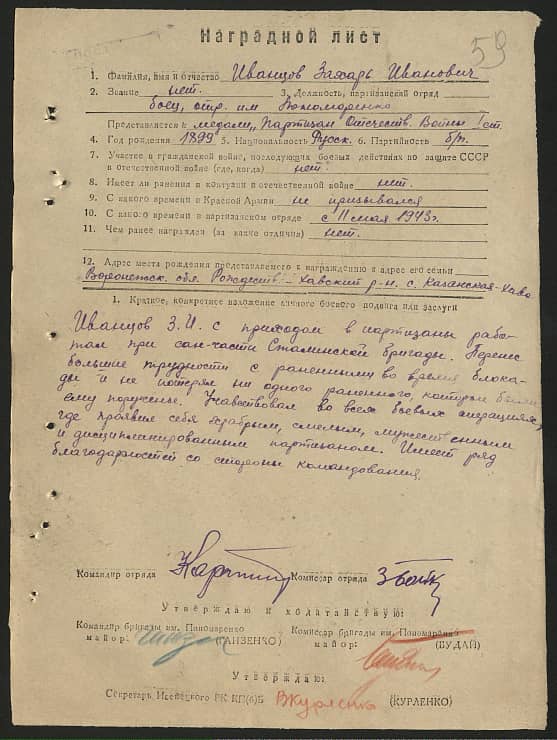 59
Наградной лист
1. Фамилия, имя и отчество Иванцов Захарь Иванович
2. Звание нет. 3. Должность, партизанский отряд
боец, отр. им Пономаренко
Представляется к медали, Партизан Отечеств. Войны I ст.
4. Год рождения 1899 5. Национальность Русск. 6. Партийность б/п.
7. Участие в гражданской войне, последующих боевых действиях по защите СССР
в отечественной войне (где, когда) нет.
8. Имеет ли ранения и контузии в отечественной войне нет.
9. С какого времени в Красной Армии не призывался
10. С какого времени в партизанском отряде с 11 мая 1943 г.
11. Чем ранее награжден (за какие отличия) нет.
12. Адрес места рождения представляемого к награждению и адрес его семьи
Воронежск. обл. Рождеств-Хавский р-н. с. Хаво
1. Краткое, конкретное изложение личного боевого подвига или заслуги
Иванцов З.И. с приходом в партизаны рабо-
тал при сан-части Сталинской бригады. Перенес
большие трудности с раненными во время блока-
ды и не потерял ни одного раненного, которые были
ему поручены. Учавствовал во всех боевых операциях,
где проявил себя храбрым, смелым, мужественным
и дисциплинированным партизаном. Имеет ряд
благодарностей со стороны командования.
Командир отряда Комиссар отряда
Утверждаю и ходатайствую:
Командир бригады им. Пономаренко Комиссар бригады им. Пономаренко
майор: (ГАНЗЕНКО) майор: (БУДАЙ)
Утверждаю:
Секретарь Ивенецкого РК КП(б)Б ВКурленко (КУРЛЕНКО)